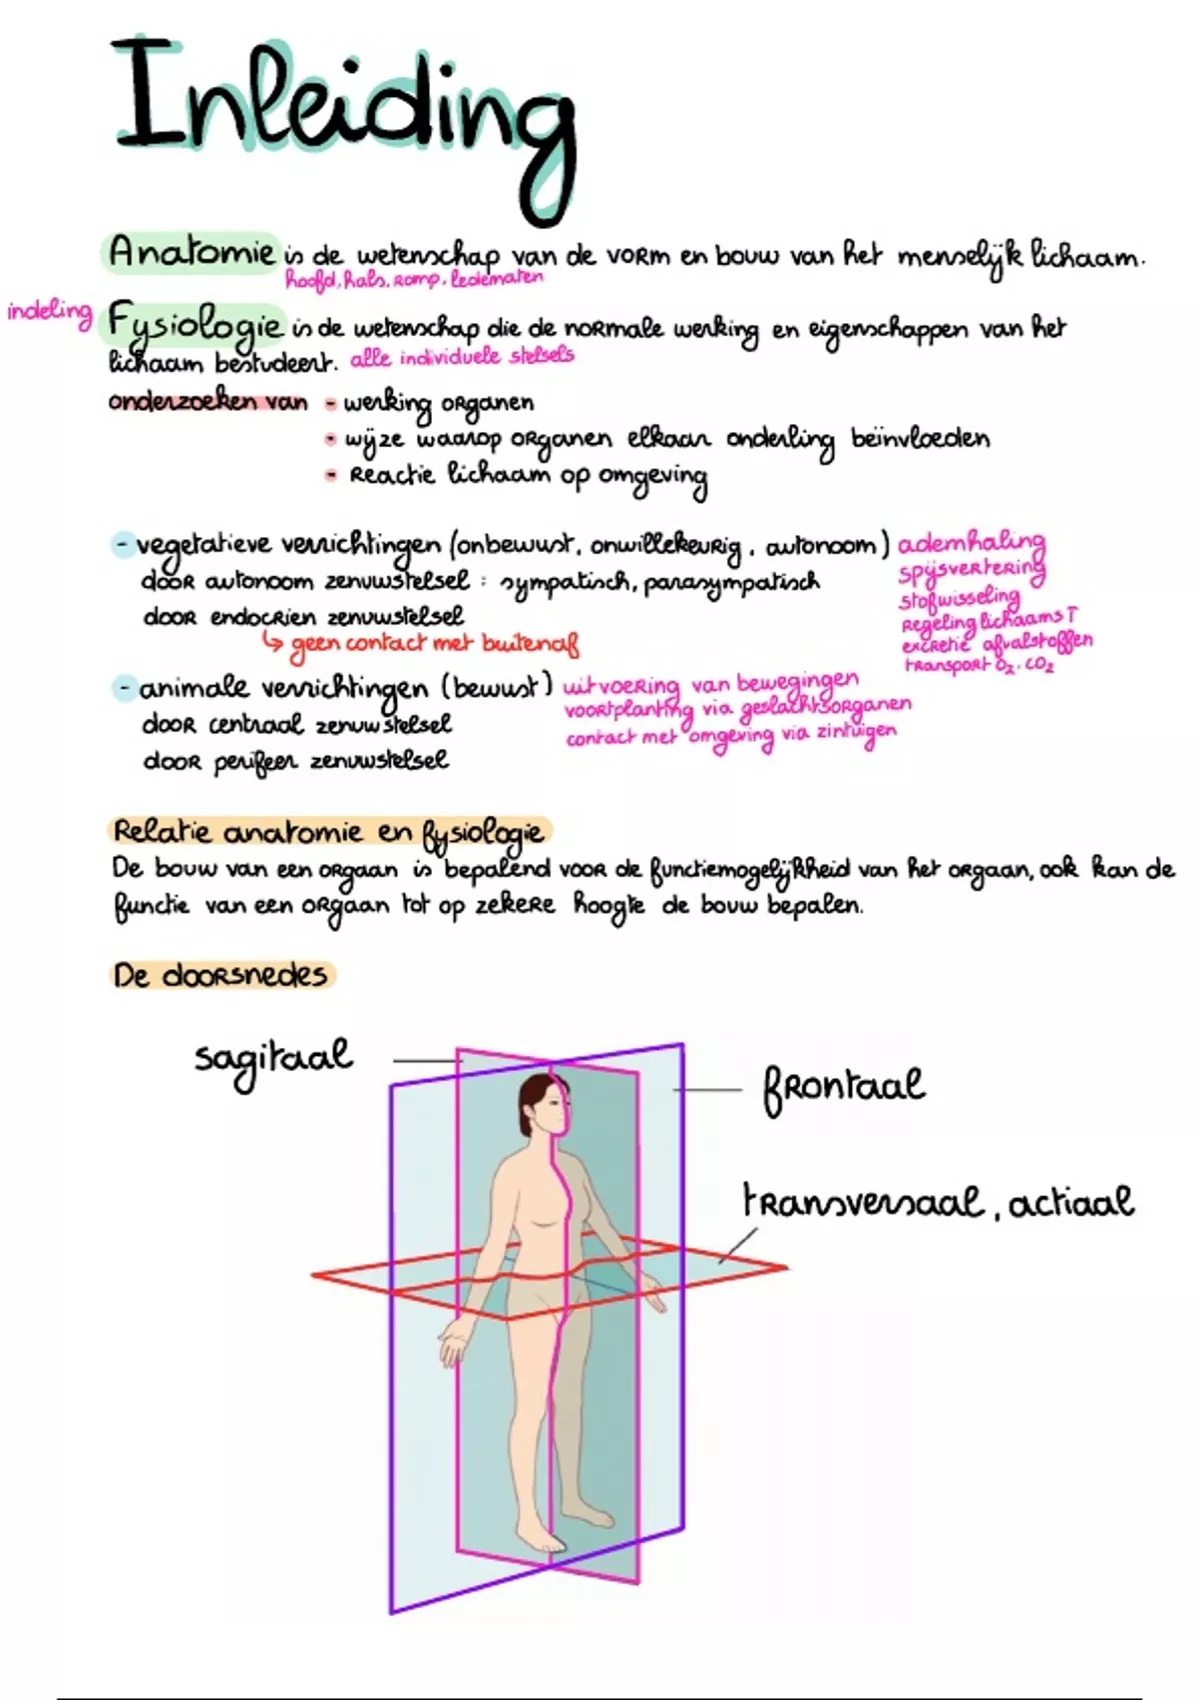 Inleiding
Anatomie is de wetenschap van de vorm en bouw van het menselijk lichaam.
hoofd, hals, romp, ledematen
indeling
Fysiologie is de wetenschap die de normale werking en eigenschappen van het
lichaam bestudeert. alle individuele stelsels
onderzoeken van - werking organen
- wijze waarop organen elkaar onderling beïnvloeden
- Reactie lichaam op omgeving
- vegetatieve verrichtingen (onbewust, onwillekeurig, autonoom) ademhaling
spijsvertering
door autonoom zenuwstelsel : sympatisch, parasympatisch
stofwisseling
door endocrien zenuwstelsel
regeling lichaams T
↳ geen contact met buitenaf
excretie afvalstoffen
transport O₂, CO₂
- animale verrichtingen (bewust) uitvoering van bewegingen
voortplanting via geslachtsorganen
door centraal zenuwstelsel
contact met omgeving via zintuigen
door perifeer zenuwstelsel
Relatie anatomie en fysiologie
De bouw van een orgaan is bepalend voor de functiemogelijkheid van het orgaan, ook kan de
functie van een orgaan tot op zekere hoogte de bouw bepalen.
De doorsnedes
sagitaal
frontaal
transversaal, actiaal